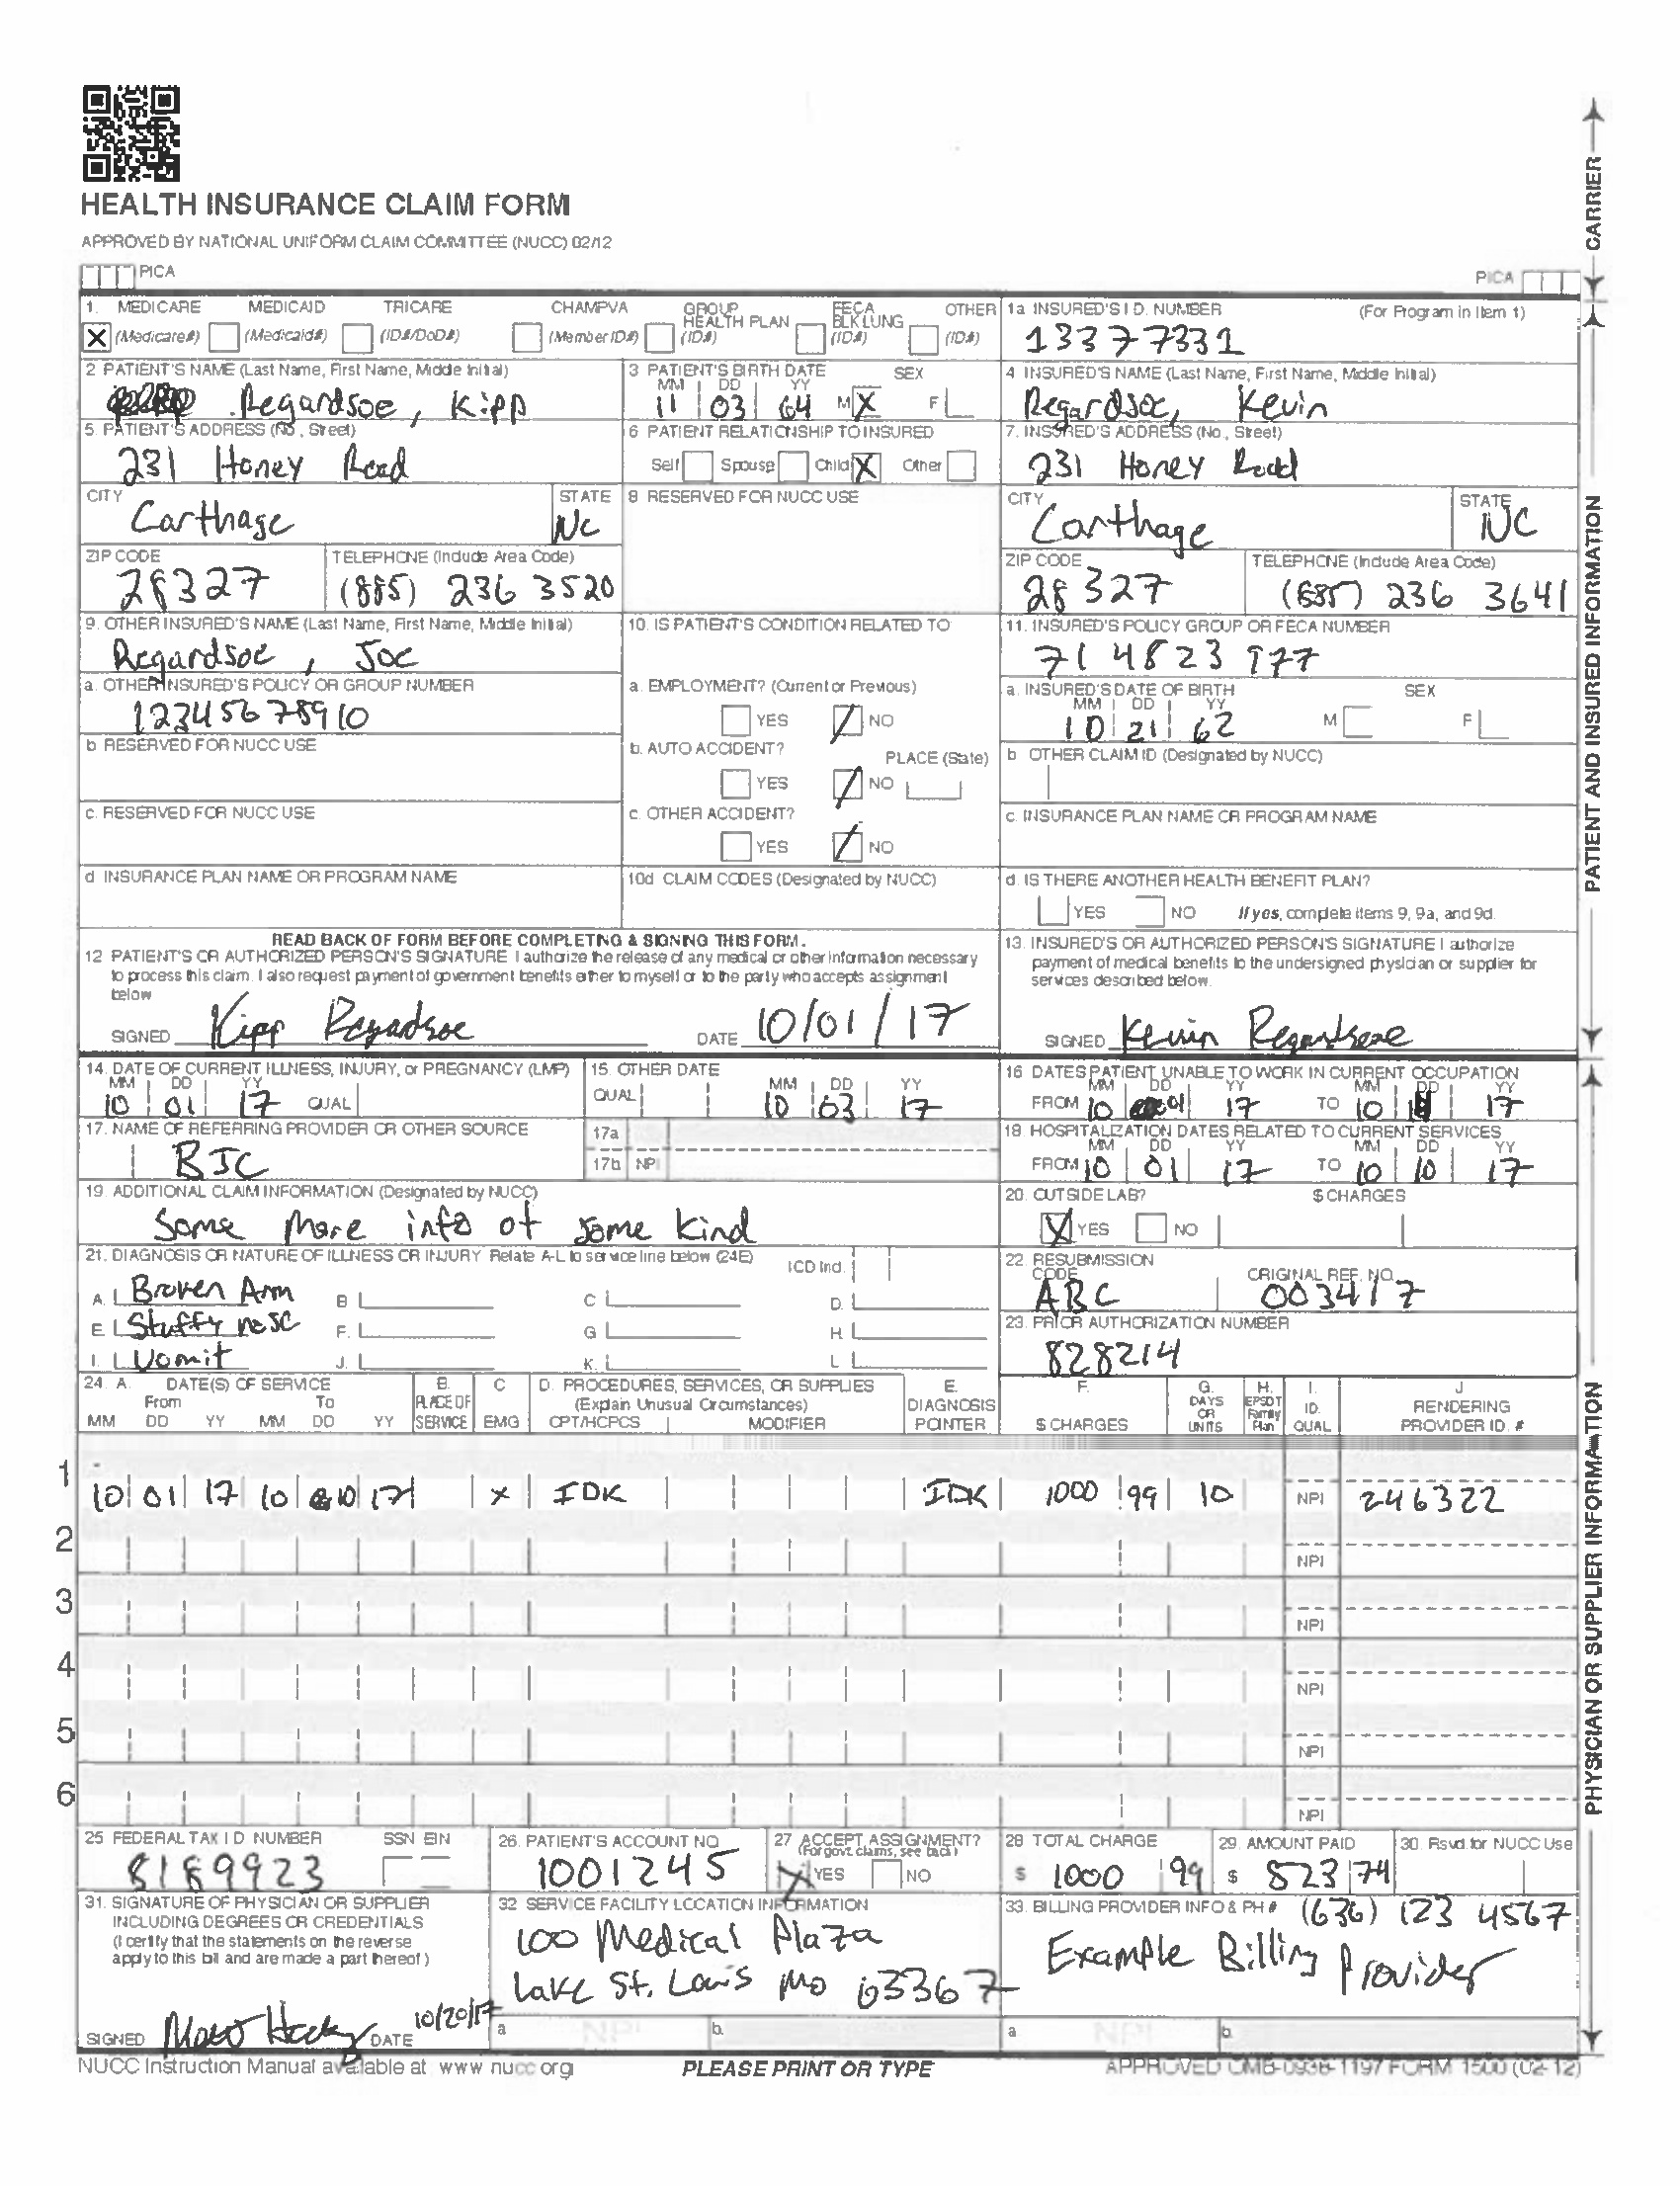 HEALTH INSURANCE CLAIM FORM
APPROVED BY NATIONAL UNIFORM CLAIM COMMITTEE (NUCC) 02/12
PICA
PICA
CARRIER
1. MEDICARE MEDICAID TRICARE CHAMPVA GROUP HEALTH PLAN FECA BLK LUNG OTHER
X (Medicare#) (Medicaid#) (ID#/DoD#) (Member ID#) (ID#) (ID#) (ID#)
1a INSURED'S I D. NUMBER (For Program in Item 1)
13377331
2 PATIENT'S NAME (Last Name, First Name, Middle Initial)
Regardsoe, Kipp
3 PATIENT'S BIRTH DATE SEX
MM DD YY
11 03 64 M X F
4 INSURED'S NAME (Last Name, First Name, Middle Initial)
Regardsoe, Kevin
5. PATIENT'S ADDRESS (No, Street)
231 Honey Road
6 PATIENT RELATIONSHIP TO INSURED
Self Spouse Child X Other
7. INSURED'S ADDRESS (No, Street)
231 Honey Road
CITY STATE
Carthage NC
8 RESERVED FOR NUCC USE
CITY STATE
Carthage NC
ZIP CODE TELEPHONE (Include Area Code)
28327 (885) 236 3520
ZIP CODE TELEPHONE (Include Area Code)
28327 236 3641
9. OTHER INSURED'S NAME (Last Name, First Name, Middle Initial)
Regardsoe, Joe
10. IS PATIENT'S CONDITION RELATED TO
11. INSURED'S POLICY GROUP OR FECA NUMBER
714823 977
a. OTHER INSURED'S POLICY OR GROUP NUMBER
12345678910
a. EMPLOYMENT? (Current or Previous)
YES NO
a. INSURED'S DATE OF BIRTH SEX
MM DD YY
10 21 62 M F
b RESERVED FOR NUCC USE
b. AUTO ACCIDENT? PLACE (State)
YES NO
b OTHER CLAIM ID (Designated by NUCC)
c. RESERVED FOR NUCC USE
c. OTHER ACCIDENT?
YES NO
c. INSURANCE PLAN NAME OR PROGRAM NAME
d INSURANCE PLAN NAME OR PROGRAM NAME
10d CLAIM CODES (Designated by NUCC)
d. IS THERE ANOTHER HEALTH BENEFIT PLAN?
YES NO If yes, complete items 9, 9a, and 9d.
PATIENT AND INSURED INFORMATION
READ BACK OF FORM BEFORE COMPLETING & SIGNING THIS FORM.
12 PATIENT'S OR AUTHORIZED PERSON'S SIGNATURE I authorize the release of any medical or other information necessary
to process this claim. I also request payment of government benefits either to myself or to the party who accepts assignment
below
SIGNED Kipp Regardsoe DATE 10/01/17
13. INSURED'S OR AUTHORIZED PERSON'S SIGNATURE I authorize
payment of medical benefits to the undersigned physician or supplier for
services described below.
SIGNED Kevin Regardsoe
14. DATE OF CURRENT ILLNESS, INJURY, or PREGNANCY (LMP)
MM DD YY
10 01 17 QUAL
15. OTHER DATE
QUAL MM DD YY
10 03 17
16 DATES PATIENT UNABLE TO WORK IN CURRENT OCCUPATION
MM DD YY MM DD YY
FROM 10 01 17 TO 10 17
17. NAME OF REFERRING PROVIDER OR OTHER SOURCE
BJC
17a
17b NPI
18 HOSPITALIZATION DATES RELATED TO CURRENT SERVICES
MM DD YY MM DD YY
FROM 10 01 17 TO 10 10 17
19. ADDITIONAL CLAIM INFORMATION (Designated by NUCC)
Some more info of some kind
20. OUTSIDE LAB? $ CHARGES
X YES NO
21. DIAGNOSIS OR NATURE OF ILLNESS OR INJURY Relate A-L to service line below (24E) ICD Ind.
A. Broken Arm B C D.
E. Stuffy nose F. G H.
I. Vomit J. K. L
22. RESUBMISSION CODE ORIGINAL REF. NO.
ABC 003417
23. PRIOR AUTHORIZATION NUMBER
828214
24. A. DATE(S) OF SERVICE B. C D. PROCEDURES, SERVICES, OR SUPPLIES E. F. G. H. I. J
From To PLACE OF (Explain Unusual Circumstances) DIAGNOSIS DAYS OR EPSDT Family ID. RENDERING
MM DD YY MM DD YY SERVICE EMG CPT/HCPCS MODIFIER POINTER $ CHARGES UNITS Plan QUAL PROVIDER ID. #
1 10 01 17 10 10 17 x IDK IDK 1000 99 10 NPI 246322
2 NPI
3 NPI
4 NPI
5 NPI
6 NPI
PHYSICIAN OR SUPPLIER INFORMATION
25 FEDERAL TAX I D NUMBER SSN EIN
8189923
26. PATIENT'S ACCOUNT NO
1001245
27 ACCEPT ASSIGNMENT?
(For govt. claims, see back)
X YES NO
28 TOTAL CHARGE
$ 1000 99
29. AMOUNT PAID
$ 823 74
30. Rsvd for NUCC Use
31. SIGNATURE OF PHYSICIAN OR SUPPLIER
INCLUDING DEGREES OR CREDENTIALS
(I certify that the statements on the reverse
apply to this bill and are made a part thereof)
SIGNED DATE 10/20/17
32 SERVICE FACILITY LOCATION INFORMATION
100 Medical Plaza
Lake St. Louis Mo 63367
a NPI b.
33. BILLING PROVIDER INFO & PH # (636) 123 4567
Example Billing Provider
a. NPI b.
NUCC Instruction Manual available at www nucc org
PLEASE PRINT OR TYPE
APPROVED OMB-0938-1197 FORM 1500 (02-12)